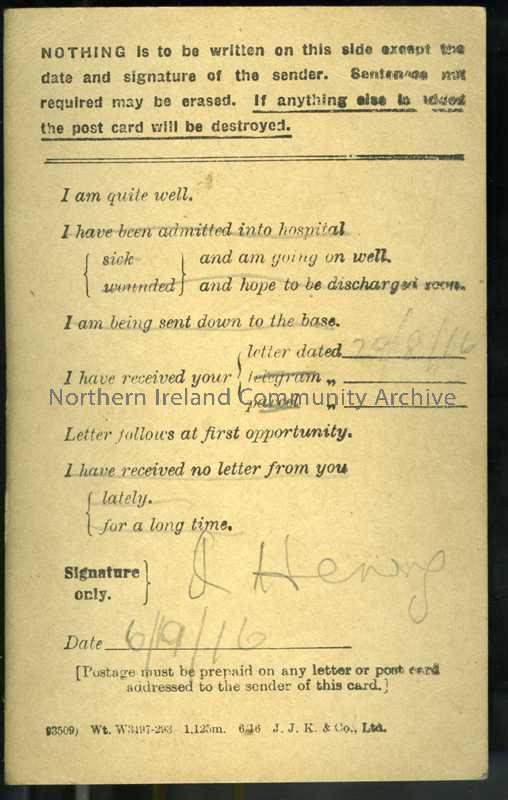 NOTHING is to be written on this side except the
date and signature of the sender. Sentences not
required may be erased. If anything else is added
the post card will be destroyed.
I am quite well.
I have been admitted into hospital
sick and am going on well.
wounded and hope to be discharged soon.
I am being sent down to the base.
letter dated 29/8/16
I have received your telegram „
parcel „
Northern Ireland Community Archive
Letter follows at first opportunity.
I have received no letter from you
lately.
for a long time.
Signature
only.
Henry
Date 6/9/16
[Postage must be prepaid on any letter or post card
addressed to the sender of this card.]
93509) Wt. W3497-293 1,125m. 6/16 J. J. K. & Co., Ltd.